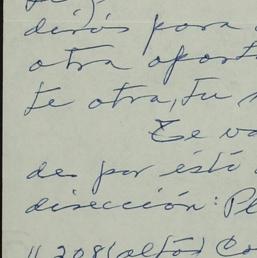 dirás para
otra oport
te otra, tu
Te va
des por ésté
disección: Pl
11 208 (altos) Co